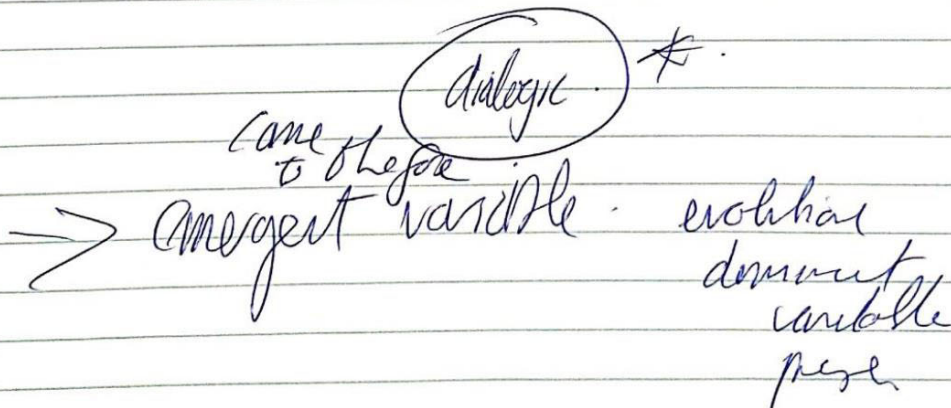 dialogic. *.
came
to the fore
emergent variable.
evolution
dominant
variable